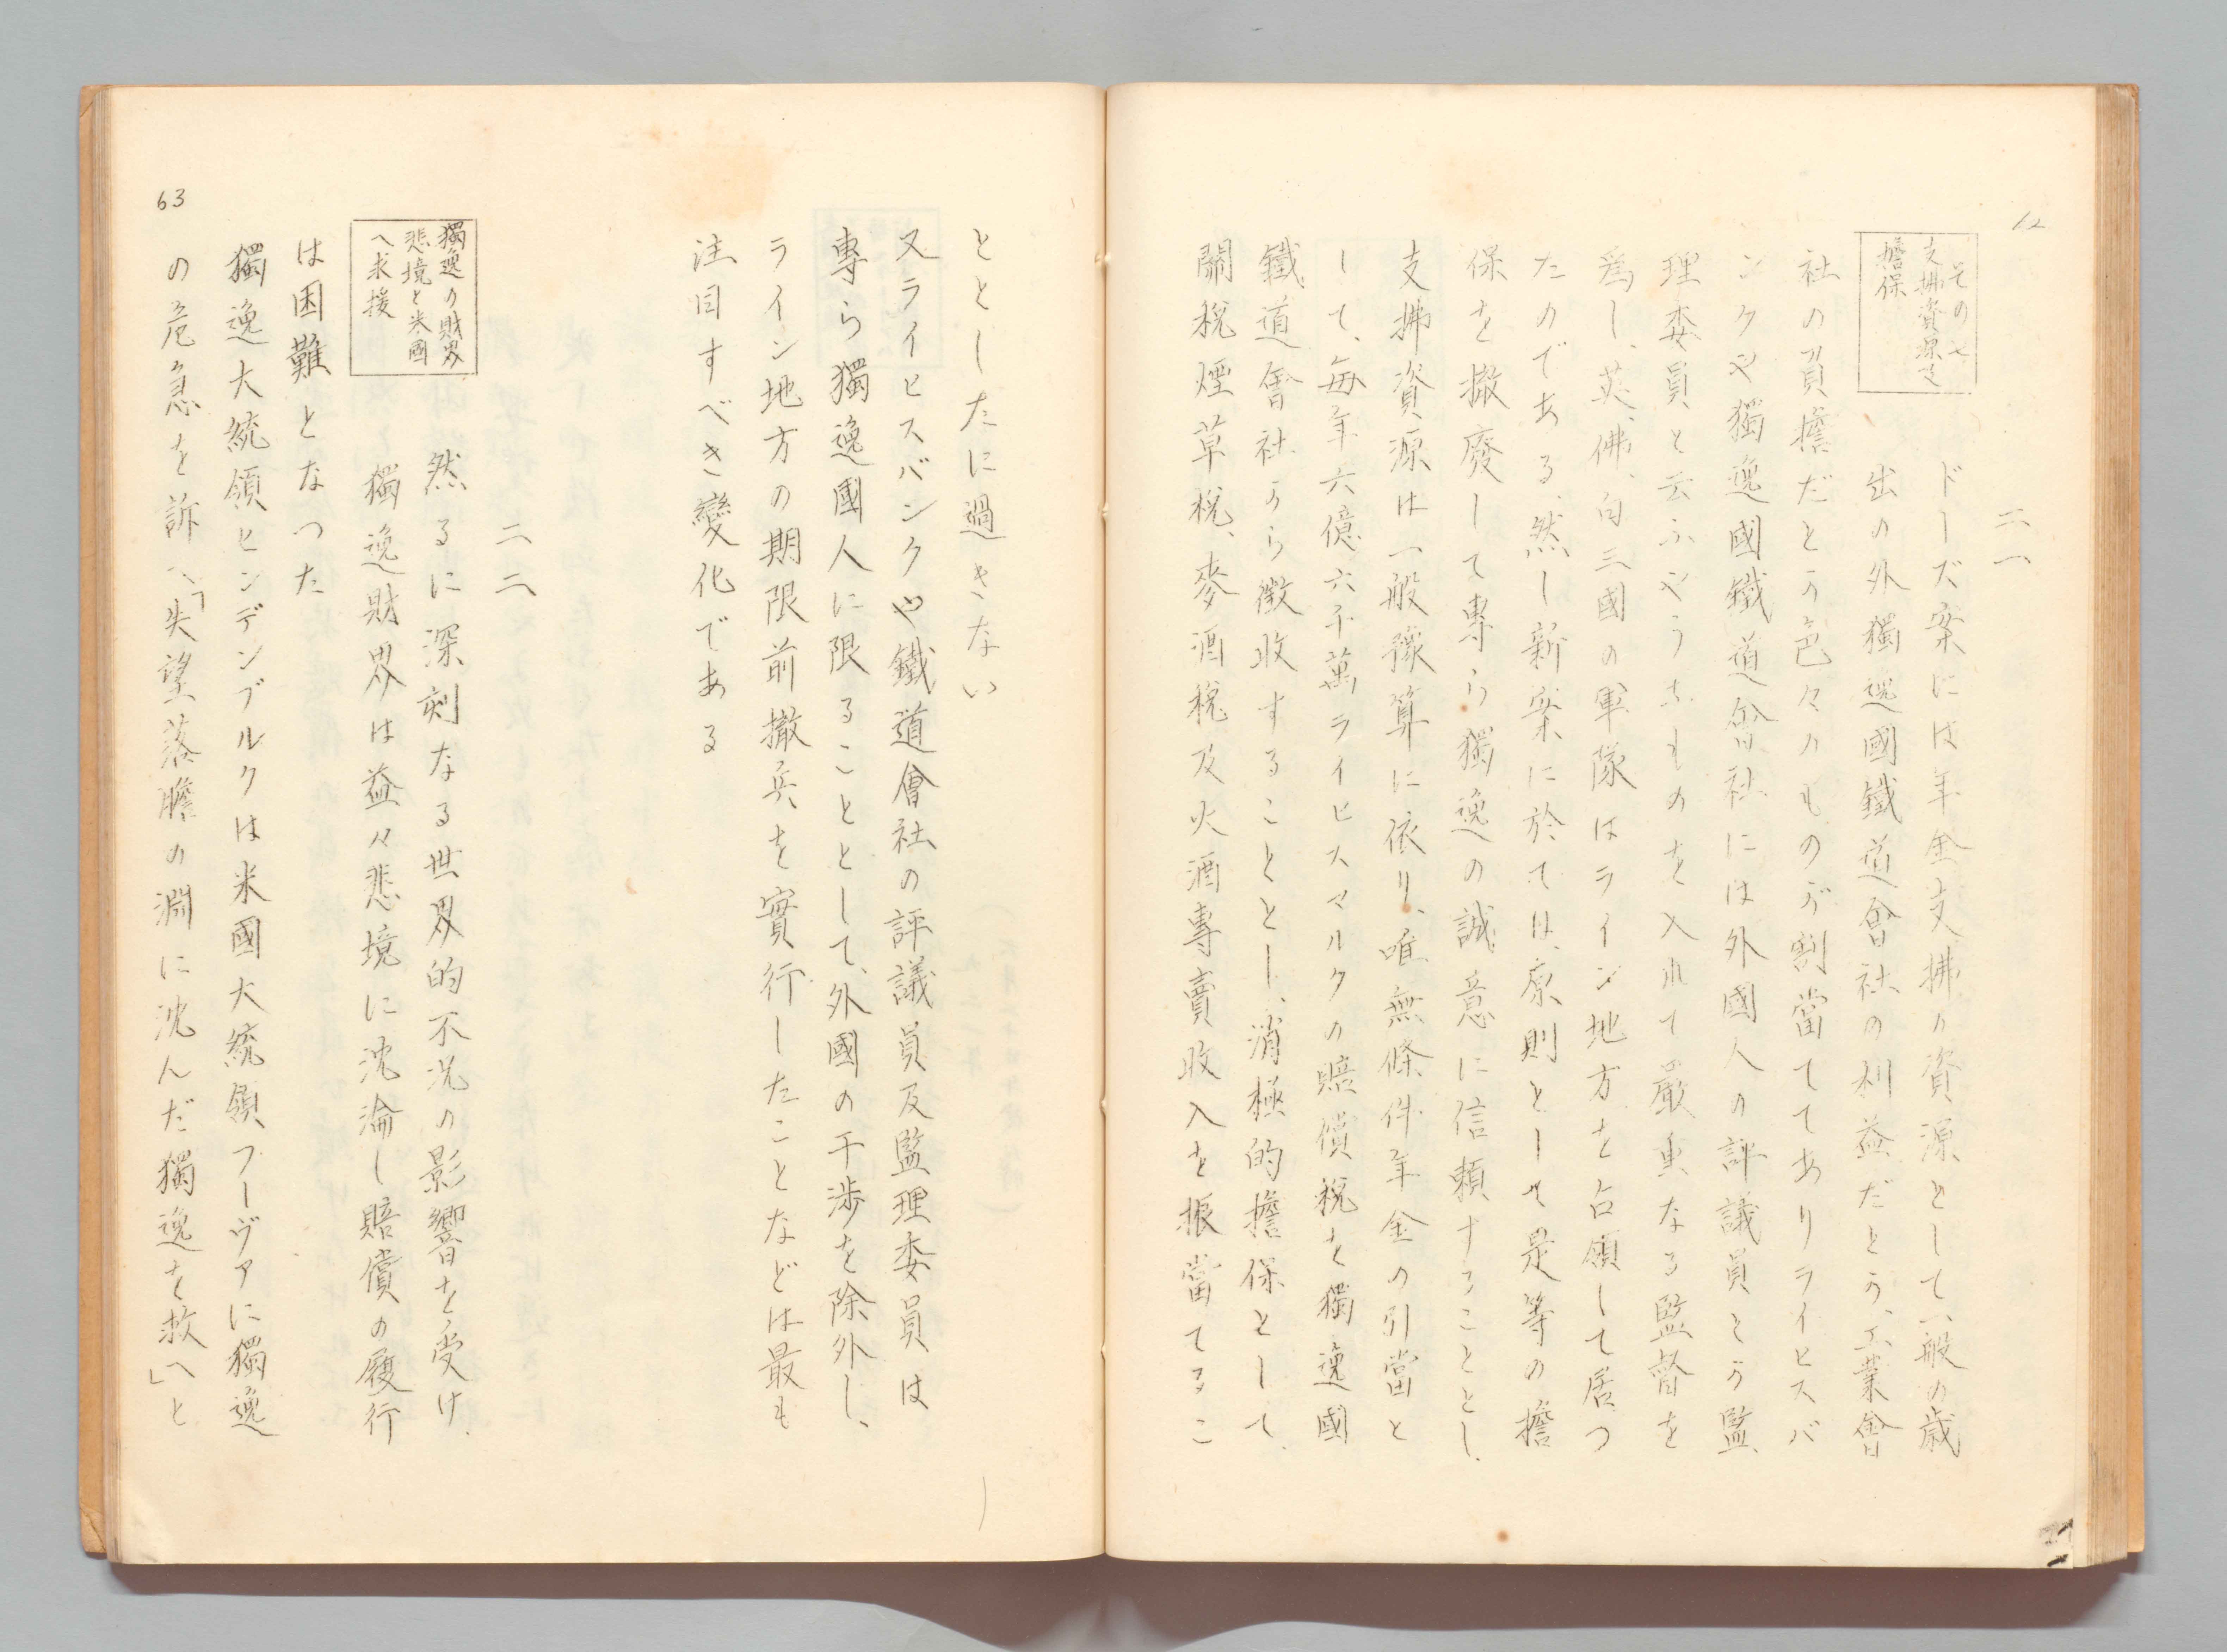 二一
その七
支拂資源と
擔保
ドーズ案には年金支拂の資源として、一般の歳
出の外獨逸國鐵道會社の利益だとか、工業會
社の負擔だとか色々のものが割當てゝありライヒスバ
ンクや獨逸國鐵道會社には外國人の評議員とか監
理委員と云ふやうなものを入れて嚴重なる監督を
爲し、英、佛、白三國の軍隊はライン地方を占領して居つ
たのである、然し新案に於ては、原則として是等の擔
保を撤廢して專ら獨逸の誠意に信頼することとし、
支拂資源は一般豫算に依り、唯無條件年金の引當と
して、毎年六億六千萬ライヒスマルクの賠償税を獨逸國
鐵道會社から徴收することとし、消極的擔保として、
關税煙草税、麥酒税及火酒專賣收入を振當てるこ
ととしたに過きない
又ライヒスバンクや鐵道會社の評議員及監理委員は
專ら獨逸國人に限ることとして、外國の干渉を除外し、
ライン地方の期限前撤兵を實行したことなどは最も
注目すべき變化である
二二
獨逸の財界
悲境と米國
へ求援
然るに深刻なる世界的不況の影響を受け、
獨逸財界は益々悲境に沈淪し賠償の履行
は困難となつた
獨逸大統領ヒンデンブルクは米國大統領フーヴァに獨逸
の危急を訴へ「失望落膽の淵に沈んだ獨逸を救へ」と
63